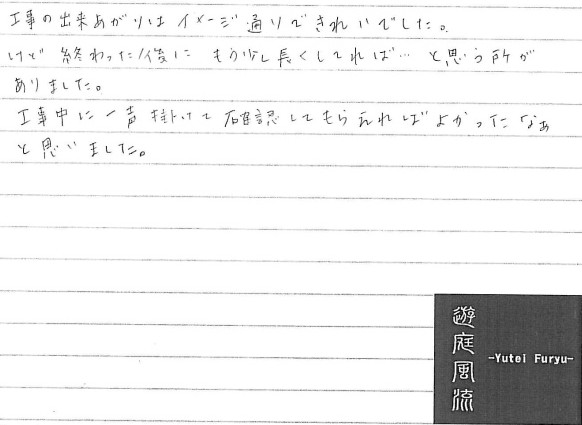 工事の出来あがりはイメージ通りできれいでした。
けど終わった後にもう少し長くしてれば…と思う所が
ありました。
工事中に一声掛けて確認してもらえればよかったなぁ
と思いました。
遊庭風流
-Yutei Furyu-